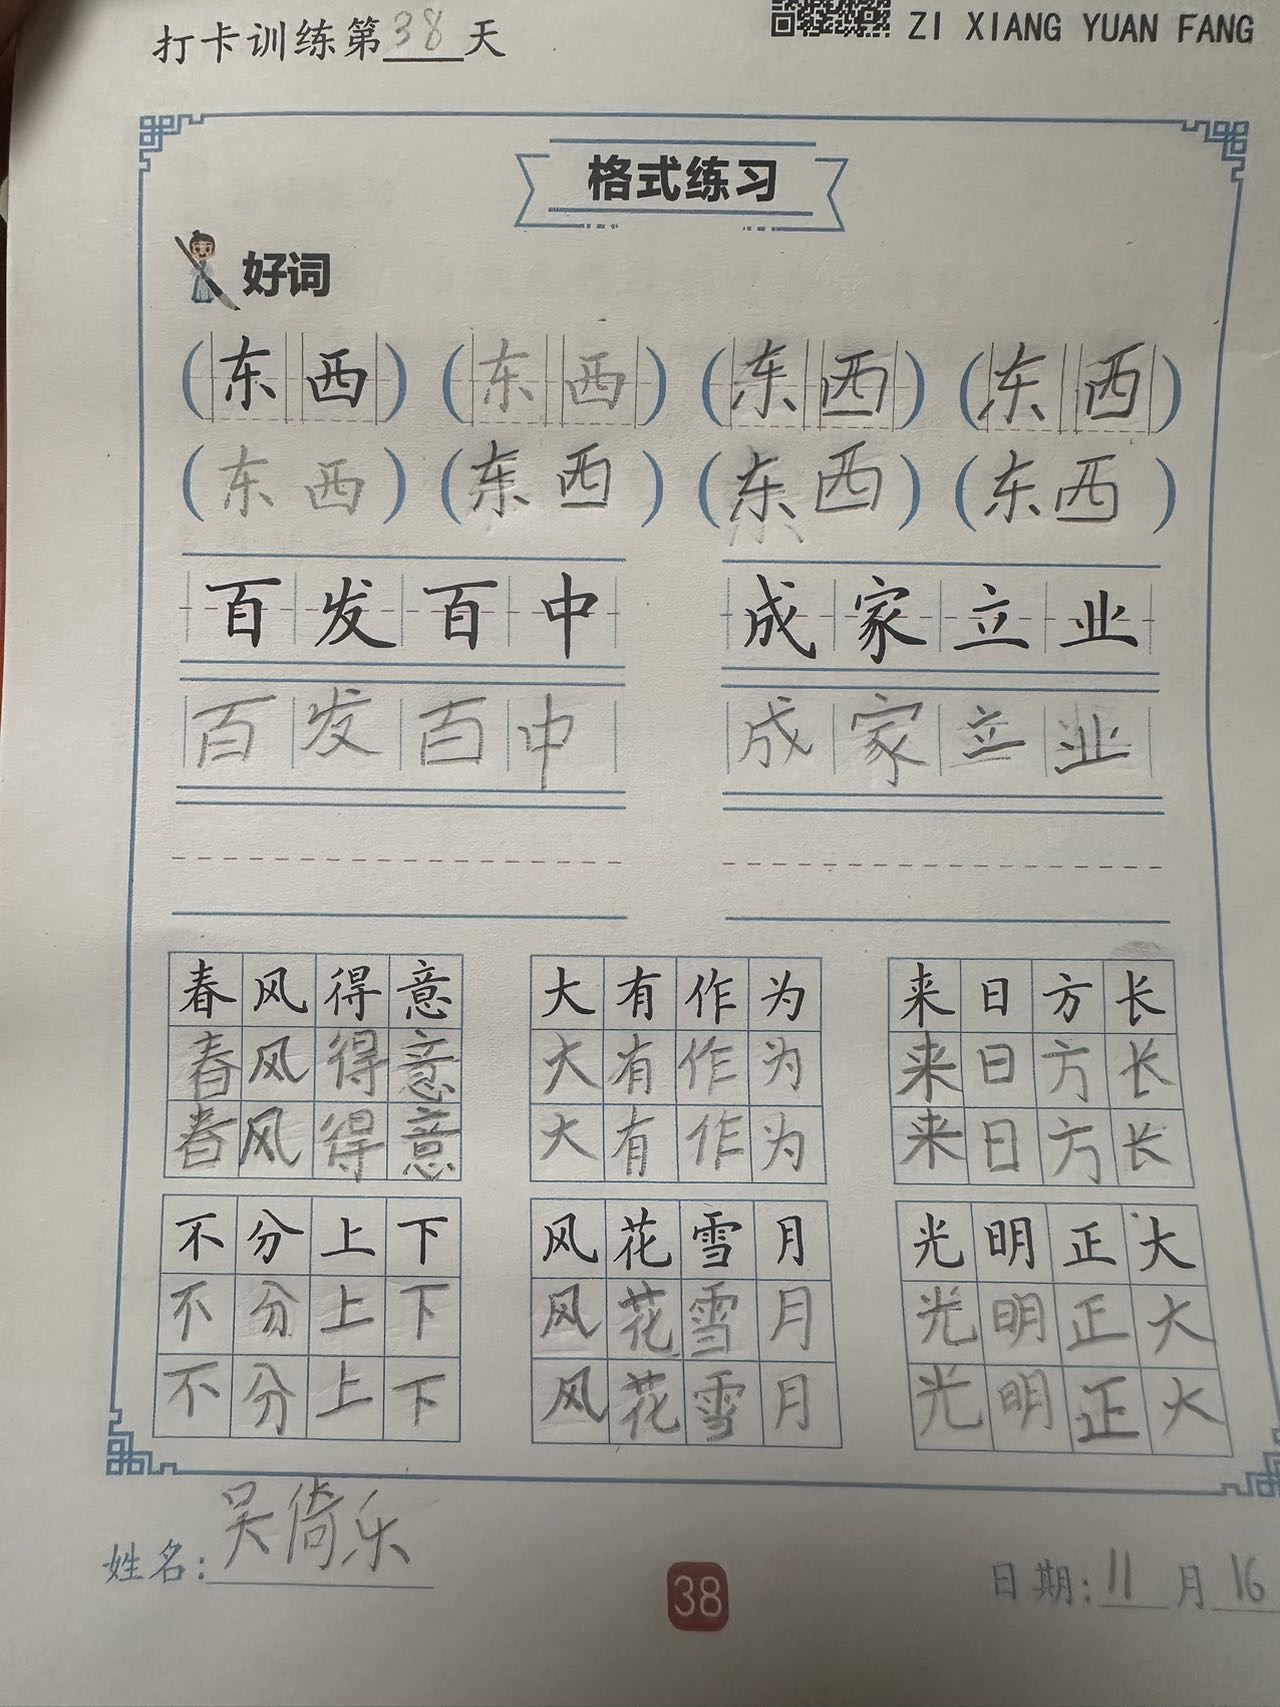 打卡训练第38天
ZI XIANG YUAN FANG
格式练习
好词
(东西) (东西) (东西) (东西)
(东西) (东西) (东西) (东西)
百发百中 成家立业
百发百中 成家立业
春风得意 大有作为 来日方长
春风得意 大有作为 来日方长
春风得意 大有作为 来日方长
不分上下 风花雪月 光明正大
不分上下 风花雪月 光明正大
不分上下 风花雪月 光明正大
姓名:吴倚乐
日期:11月16
38